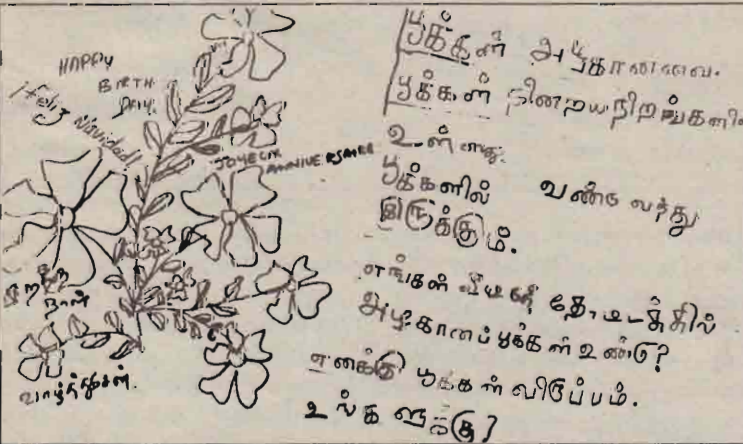 HAPPY
BIRTH
DAY.
¡Feliz Navidad!
JOYEUX
ANNIVERSAIRE
பிறந்த
நாள்
வாழ்த்துகள்.
பூக்கள் அழகானவை.
பூக்கள் நிறையநிறங்களில்
உள்ளது.
பூக்களில் வண்டு வந்து
இருக்கும்.
எங்கள் வீட்டு தோட்டத்தில்
அழகானப்பூக்கள் உண்டு?
எனக்கு பூக்கள் விருப்பம்.
உங்களுக்கு?